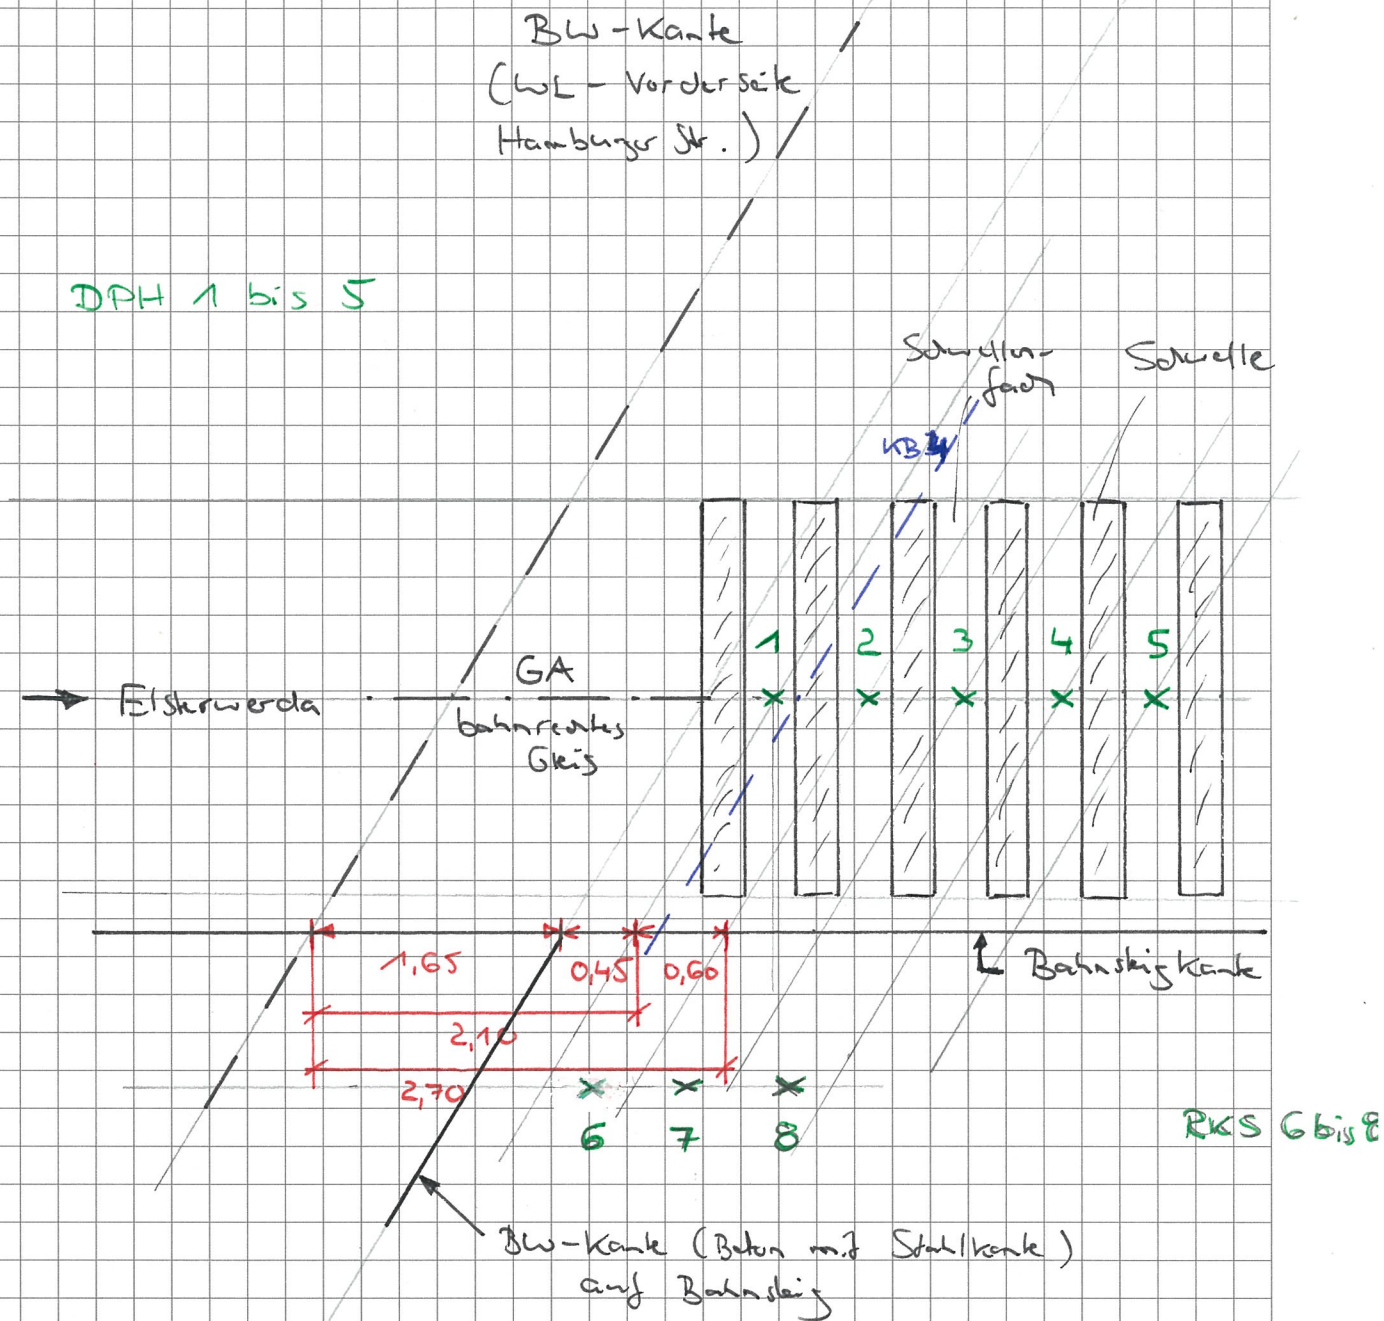 BW-Kante
(WL - Vorderseite
Hamburger Str.)
DPH 1 bis 5
Schwellen-
fach
Schwelle
KB
1 2 3 4 5
GA
Elsterwerda
bahnrechtes
Gleis
1,65 0,45 0,60
Bahnsteigkante
2,10
2,70
6 7 8
RKS 6 bis 8
BW-Kante (Beton mit Stahlkante)
auf Bahnsteig